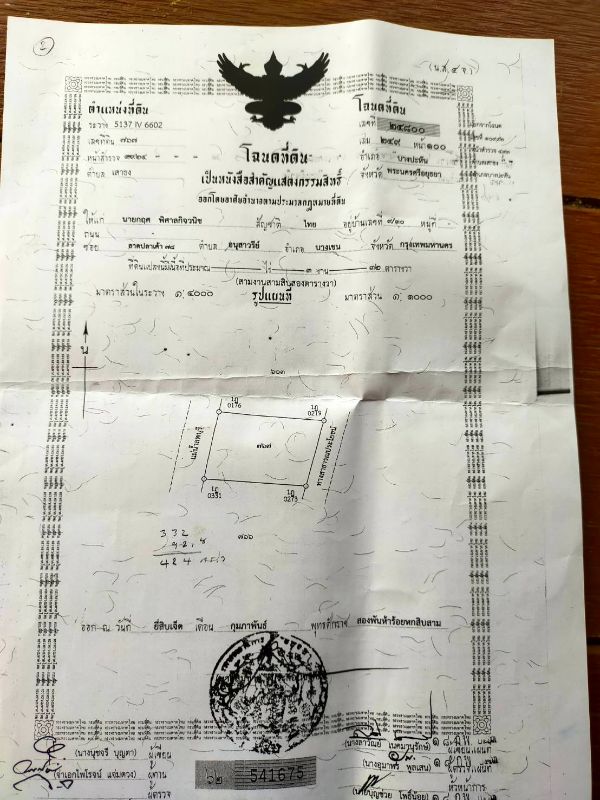 (น.ส.๔ จ.)
ตำแหน่งที่ดิน
ระวาง 5137 IV 6602
เลขที่ดิน ๗๖๗
หน้าสำรวจ
ตำบล เสาธง
โฉนดที่ดิน
เลขที่ ๒๔๘๐๐
เล่ม ๒๔๙ หน้า ๑๐๐
อำเภอ บางปะหัน
จังหวัด พระนครศรีอยุธยา
โฉนดที่ดิน
เป็นหนังสือสำคัญแสดงกรรมสิทธิ์
ออกโดยอาศัยอำนาจตามประมวลกฎหมายที่ดิน
ให้แก่ นายกฤศ พิศาลกิจวนิช สัญชาติ ไทย อยู่บ้านเลขที่ ๙/๑๐ หมู่ที่ -
ถนน
ซอย ลาดปลาเค้า ๗๘ ตำบล อนุสาวรีย์ อำเภอ บางเขน จังหวัด กรุงเทพมหานคร
ที่ดินแปลงนี้มีเนื้อที่ประมาณ - ไร่ ๓ งาน ๓๒ ตารางวา
(สามงานสามสิบสองตารางวา)
มาตราส่วนในระวาง ๑:๔๐๐๐ รูปแผนที่ มาตราส่วน ๑:๑๐๐๐
น
๖๐๓
0176
0279
แม่น้ำลพบุรี
๗๖๗
ทางสาธารณประโยชน์
0331
0273
๗๖๖
332
424
ออก ณ วันที่ ยี่สิบเจ็ด เดือน กุมภาพันธ์ พุทธศักราช สองพันห้าร้อยหกสิบสาม
(นางนุชจรี บุญตา) ผู้เขียน
(จ่าเอกไพโรจน์ แจ่มดวง) ผู้ทาน
ผู้ตรวจ
๖๒ 541675
(นางลาวัณย์ เนตมานุรักษ์)
ผู้เขียนแผนที่
(นางอุมาพร พูลเสน)
ผู้ตรวจแผนที่
หัวหน้าการ
(นายบุญช่วย โพธิ์น้อย)